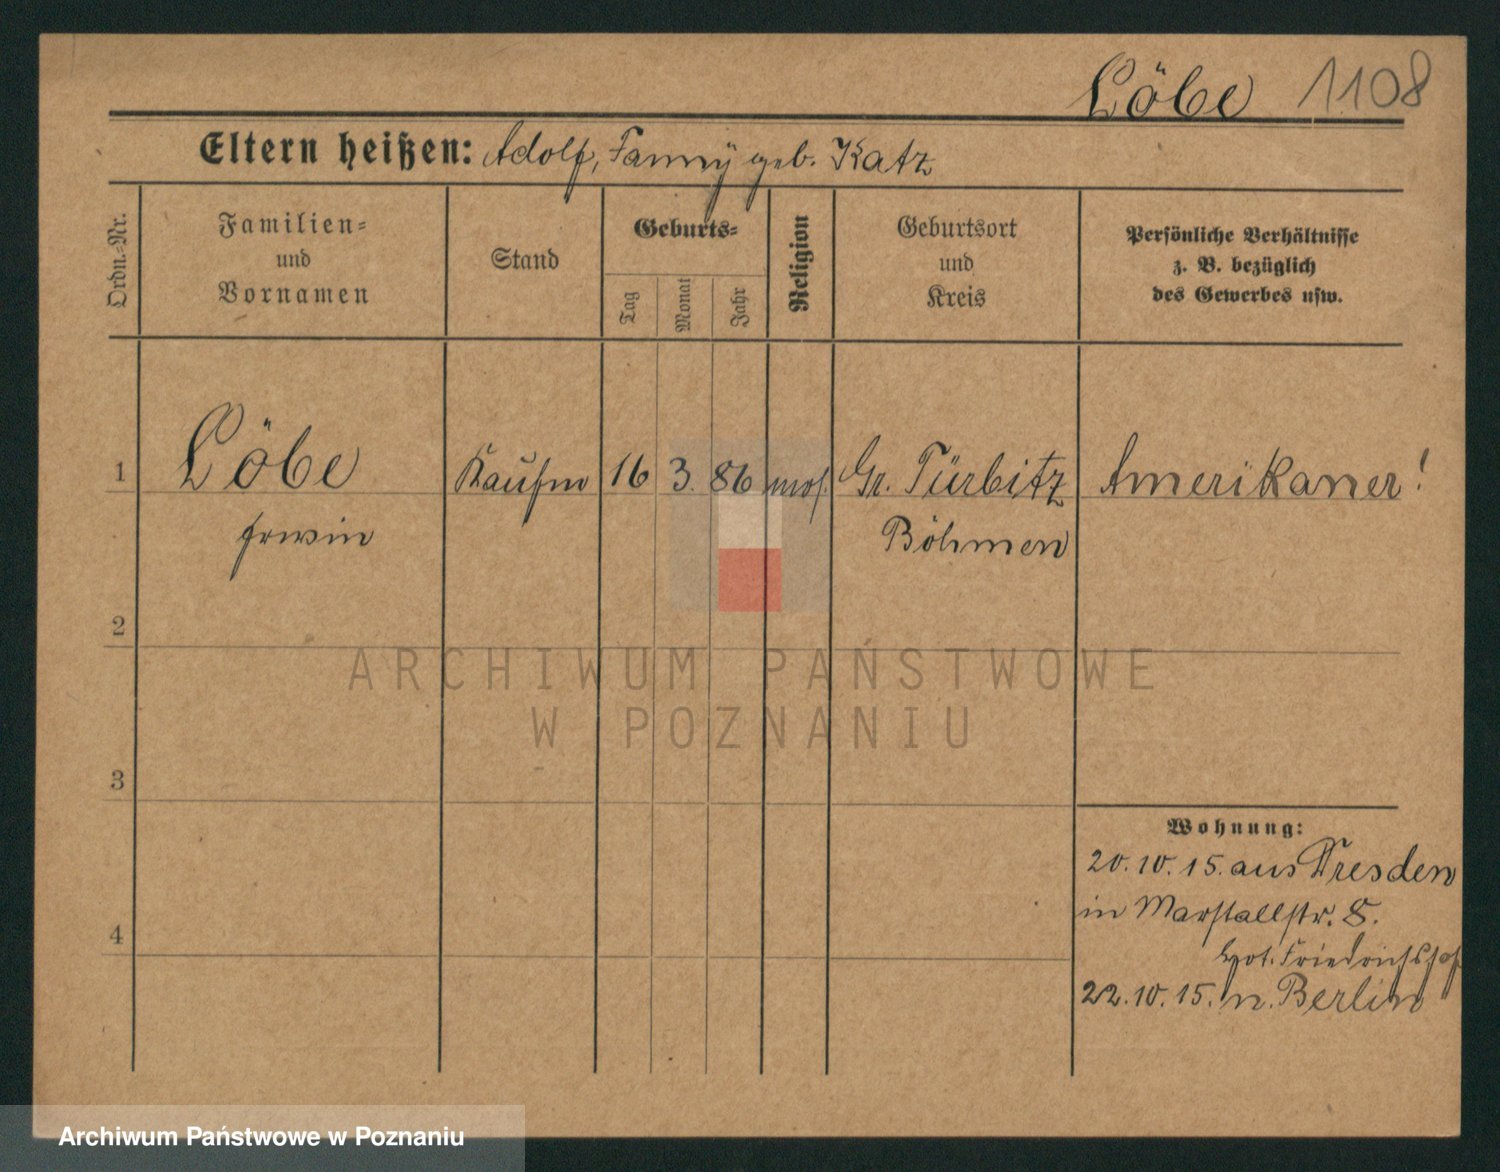 Löbe 1108
Eltern heißen: Adolf, Fanny geb. Katz
Ordn.-Nr.
Familien-
und
Vornamen
Stand
Geburts-
Tag
Monat
Jahr
Religion
Geburtsort
und
Kreis
Persönliche Verhältnisse
z. B. bezüglich
des Gewerbes usw.
1 Löbe Kaufm 16 3. 86 mos. Gr. Türbitz Amerikaner!
Erwin Böhmen
2
ARCHIWUM PAŃSTWOWE
W POZNANIU
3
Wohnung:
20.10.15. aus Dresden
in Marstallstr. 8.
4
Hot. Friedrichshof
22.10.15. n. Berlin
Archiwum Państwowe w Poznaniu